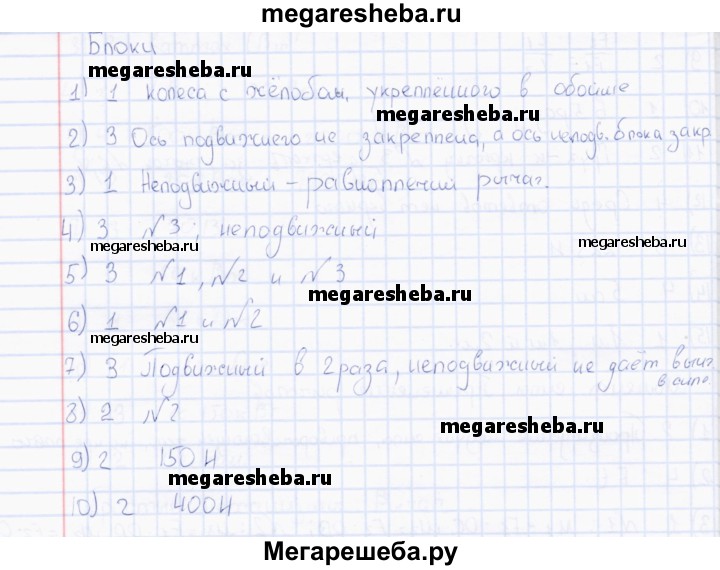 megaresheba.ru
Блоки
megaresheba.ru
1) 1 колеса с жёлобам, укреплённого в обойме
megaresheba.ru
2) 3 Ось подвижнего не закреплена, а ось неподв. блока закр
3) 1 Неподвижный - равноплечий рычаг.
4) 3 №3; неподвижный
megaresheba.ru
megaresheba.ru
5) 3 №1, №2 и №3
megaresheba.ru
6) 1 №1 и №2
megaresheba.ru
7) 3 Подвижный в 2 раза, неподвижный не даёт выиг
в силе.
8) 2 №2
megaresheba.ru
9) 2 150 Н
megaresheba.ru
10) 2 400Н
Мегарешеба.ру